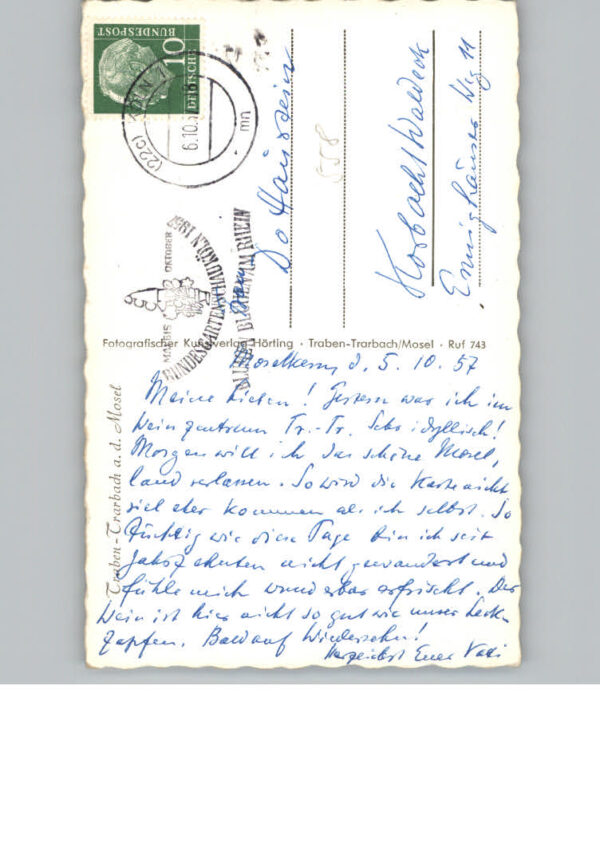 DEUTSCHE
BUNDESPOST
10
(22c) KÖLN 1
6.10.57
mn
MAI BIS OKTOBER
BUNDESGARTENSCHAU KÖLN 1957
BLUMEN BLÜHEN AM RHEIN
558
Korbach/Waldeck
Enninghäuser Weg 11
Fotografischer Kunstverlag Hörting · Traben-Trarbach/Mosel · Ruf 743
Traben-Trarbach a. d. Mosel
Moselkern, d. 5. 10. 57
Meine Lieben! Gestern war ich im
Weinzentrum Tr.-Tr. Sehr idyllisch!
Morgen will ich das schöne Mosel-
land verlassen. So wird die Karte nicht
viel eher kommen als ich selbst. So
tüchtig wie diese Tage bin ich seit
Jahrzehnten nicht gewandert und
fühle mich wunderbar erfrischt. Der
Wein ist hier nicht so gut wie unser
zapfen. Bald auf Wiedersehn!
Herzlichst Euer Vati